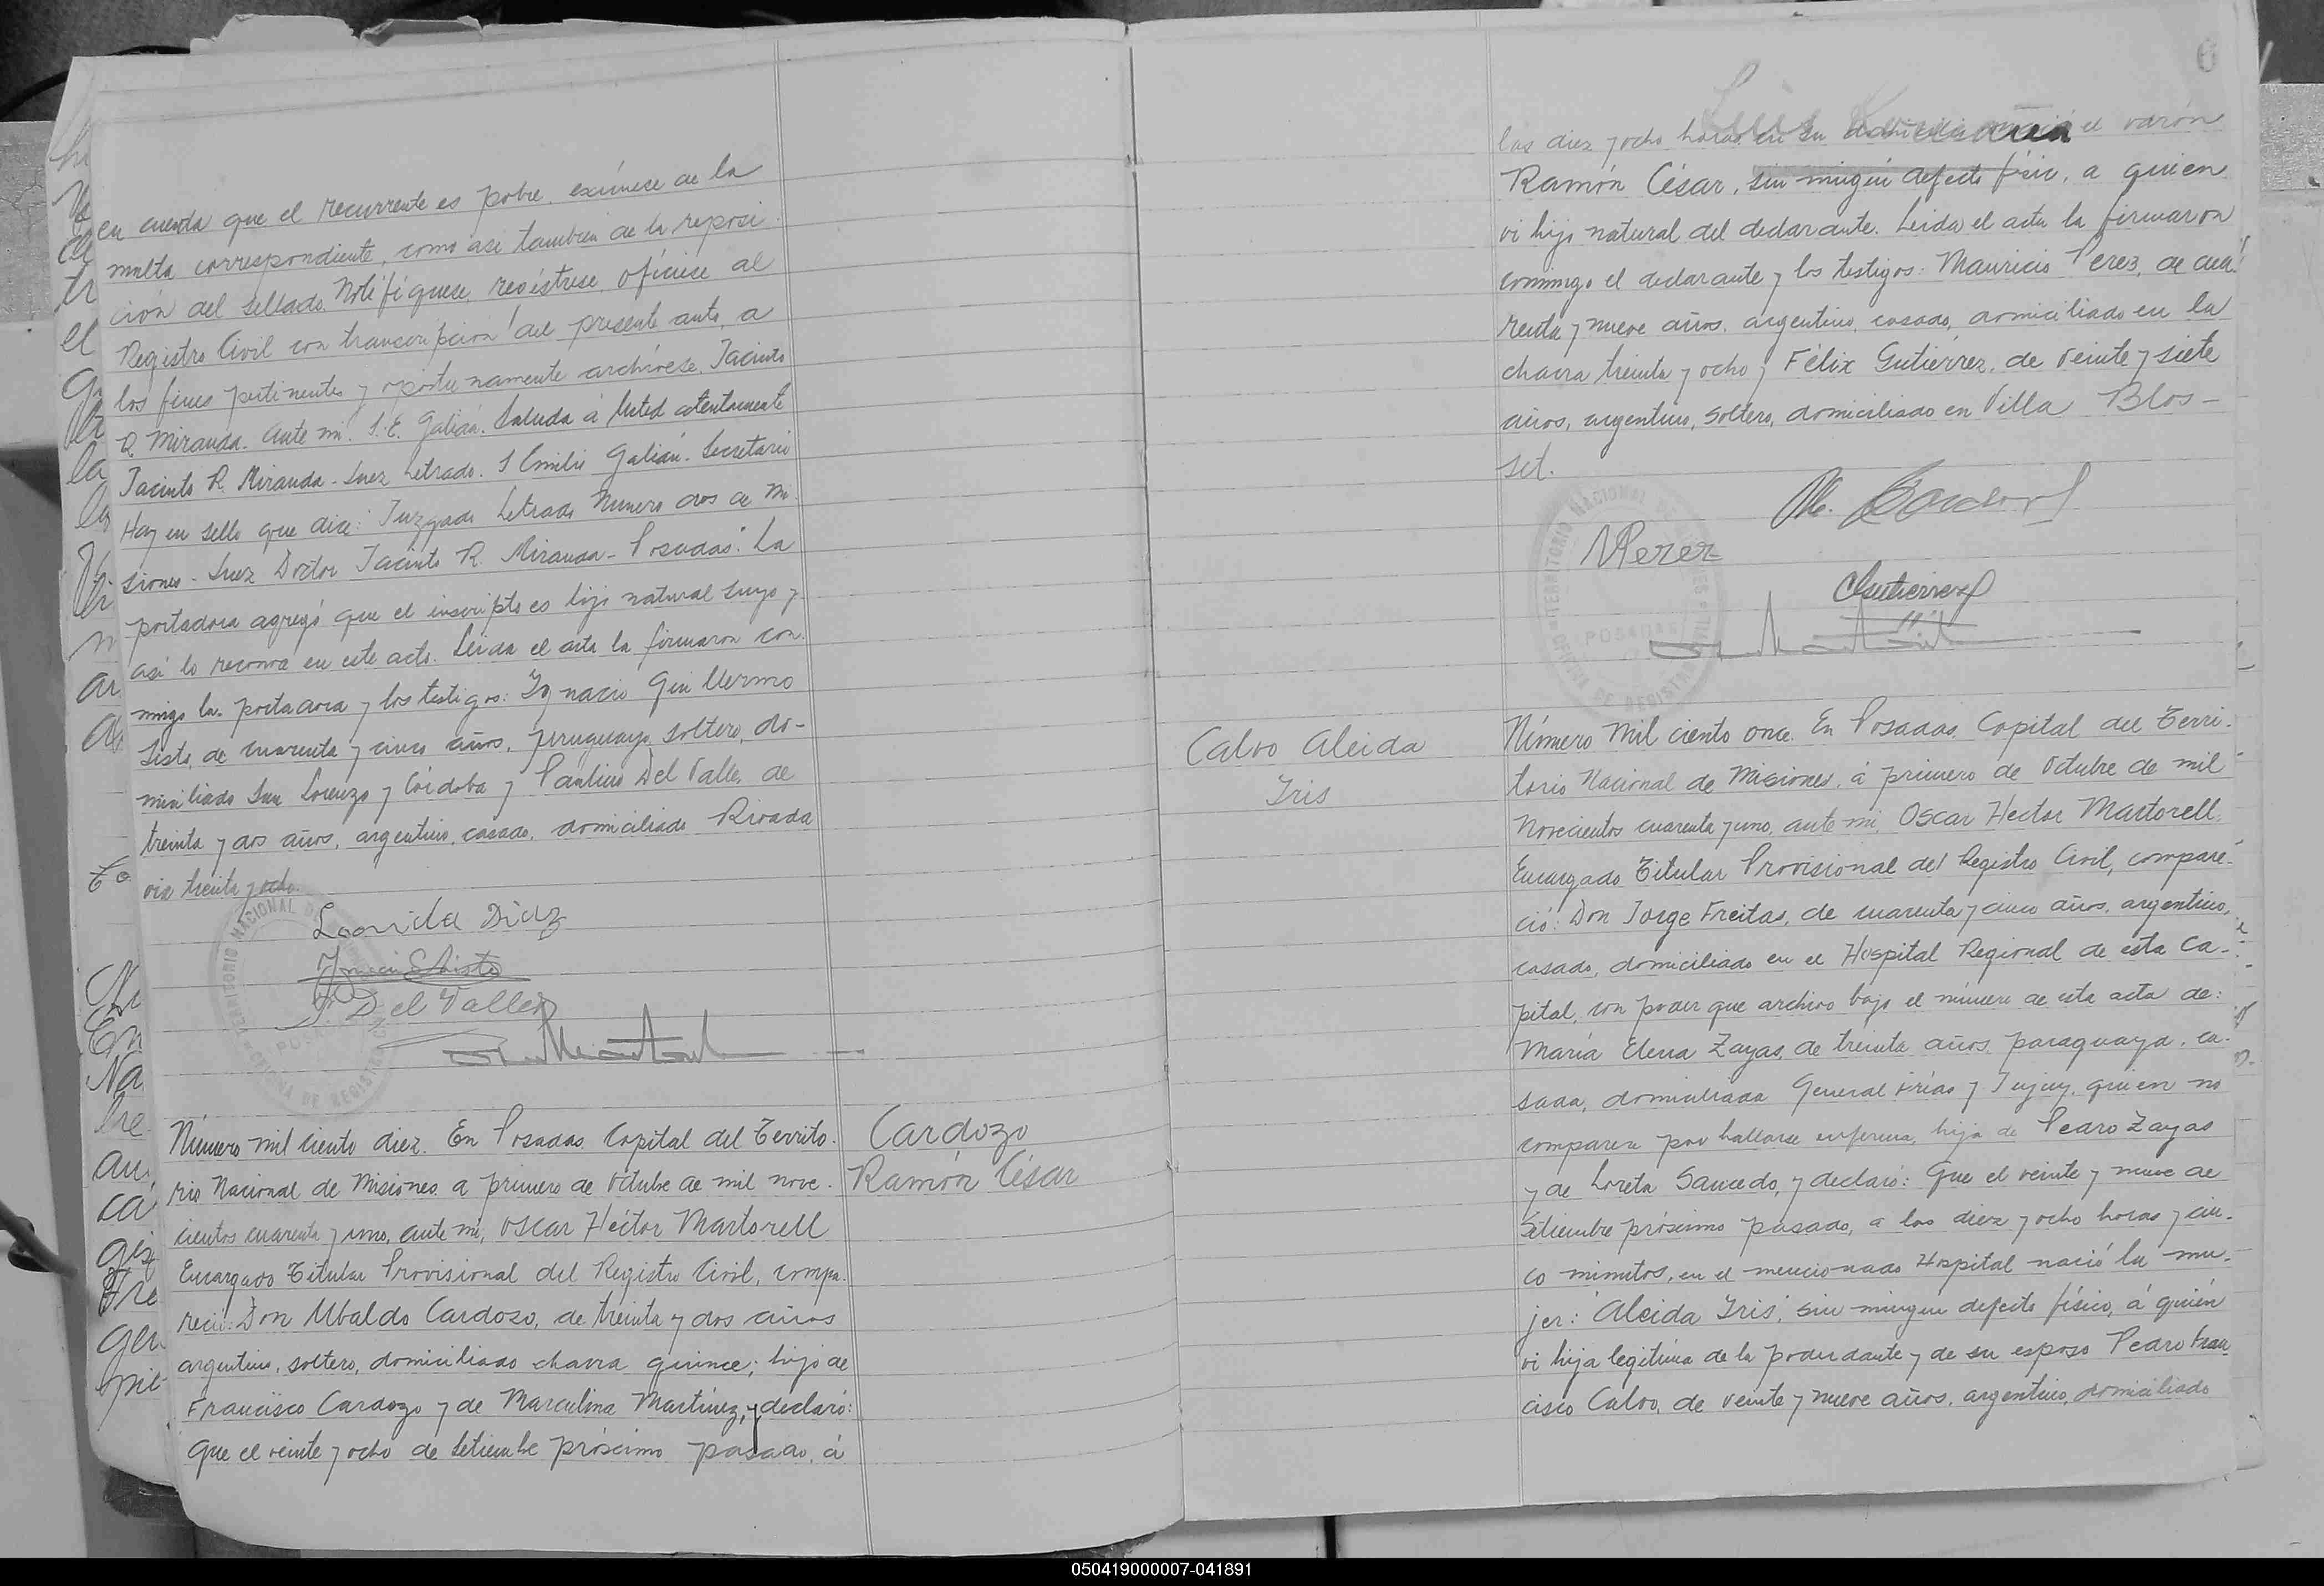 en cuenta que el recurrente es pobre, exímese de la
multa correspondiente, como asi tambien de la reposi
ción del sellado. Notifíquese, regístrese, ofíciese al
Registro Civil con transcripción del presente auto, a
los fines pertinentes y oportunamente archívese. Jacinto
R. Miranda. Ante mi. S. E. Galián. Saluda á Usted atentamente
Jacinto R. Miranda - Juez Letrado. S Emilio Galián. Secretario
Hay un sello que dice: Juzgado Letrado Numero dos de Mi
siones - Juez Doctor Jacinto R. Miranda - Posadas". La
portadora agregó que el inscripto es hijo natural suyo y
asi lo reconoce en este acto. Leida el acta la firmaron con
migo la portadora y los testigos: Ignacio Guillermo
Sisto, de cuarenta y cinco años, uruguayo, soltero, do-
miciliado San Lorenzo y Córdoba y Paulino Del Valle, de
treinta y dos años, argentino, casado, domiciliado Rivada
via treinta y ocho.
Diaz
Del Valle
Número mil ciento diez. En Posadas Capital del Territo-
rio Nacional de Misiones a primero de Octubre de mil nove-
cientos cuarenta y uno, ante mi, Oscar Héctor Martorell
Encargado Titular Provisional del Registro Civil, compa-
reció: Don Ubaldo Cardozo, de treinta y dos años
argentino, soltero, domiciliado chacra quince; hijo de
Francisco Cardozo y de Marculina Martínez, y declaró:
Que el veinte y ocho de Setiembre próximo pasado, á
Cardozo
Ramón César
6
las diez y ocho horas en su el varón
Ramón César, sin ningún defecto físic, a quien
vi hijo natural del declarante. Leida el acta la firmaron
conmigo el declarante y los testigos: Mauricio Perez, de cua-
renta y nueve años, argentino, casado, domiciliado en la
chacra treinta y ocho y Félix Gutiérrez, de veinte y siete
años, argentino, soltero, domiciliado en Villa Blos-
set.
MPerez
Gutierrez
TERRITORIO NACIONAL DE MISIONES
OFICINA DE REGISTRO CIVIL
POSADAS
Calvo Aleida
Iris
Número mil ciento once. En Posadas, Capital del Terri-
torio Nacional de Misiones, á primero de Octubre de mil
novecientos cuarenta y uno, ante mi, Oscar Hector Martorell,
Encargado Titular Provisional del Registro Civil, compare-
ció: Don Jorge Freitas, de cuarenta y cinco años, argentino,
casado, domiciliado en el Hospital Regional de esta Ca-
pital, con poder que archivo bajo el número de esta acta de:
María Elena Zayas, de treinta años, paraguaya, ca-
sada, domiciliada General Frías y Jujuy, quien no
comparece por hallarse enferma, hija de Pedro Zayas
y de Loreta Saucedo, y declaró: Que el veinte y nueve de
Setiembre próximo pasado, a las diez y ocho horas y cin-
co minutos, en el mencionado Hospital nació la mu-
jer: "Aleida Iris", sin ningún defecto físico, á quién
vi hija legítima de la poderdante y de su esposo Pedro Fran
cisco Calvo, de veinte y nueve años, argentino, domiciliado
050419000007-041891